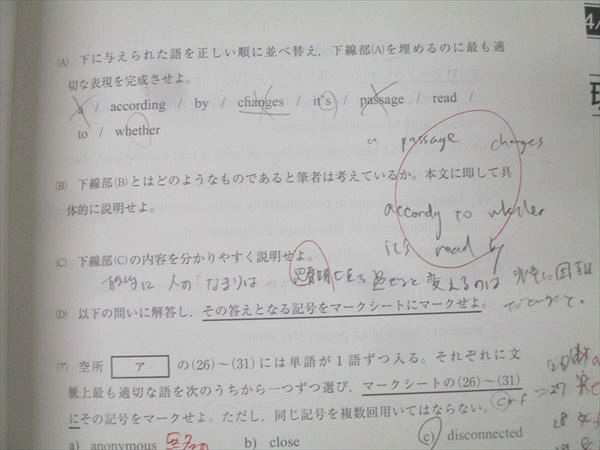 (A) 下に与えられた語を正しい順に並べ替え，下線部(A)を埋めるのに最も適
切な表現を完成させよ。
a / according / by / changes / it's / passage / read /
to / whether
a passage changes
(B) 下線部(B)とはどのようなものであると筆者は考えているか。本文に即して具
体的に説明せよ。
accordy to whether
it's read by
(C) 下線部(C)の内容を分かりやすく説明せよ。
人の なまりは 変えるのは
(D) 以下の問いに解答し，その答えとなる記号をマークシートにマークせよ。
(ｱ) 空所 ア の(26)～(31)には単語が1語ずつ入る。それぞれに文
脈上最も適切な語を次のうちから一つずつ選び，マークシートの(26)～(31)
にその記号をマークせよ。ただし，同じ記号を複数回用いてはならない。
27
28
a) anonymous b) close c) disconnected